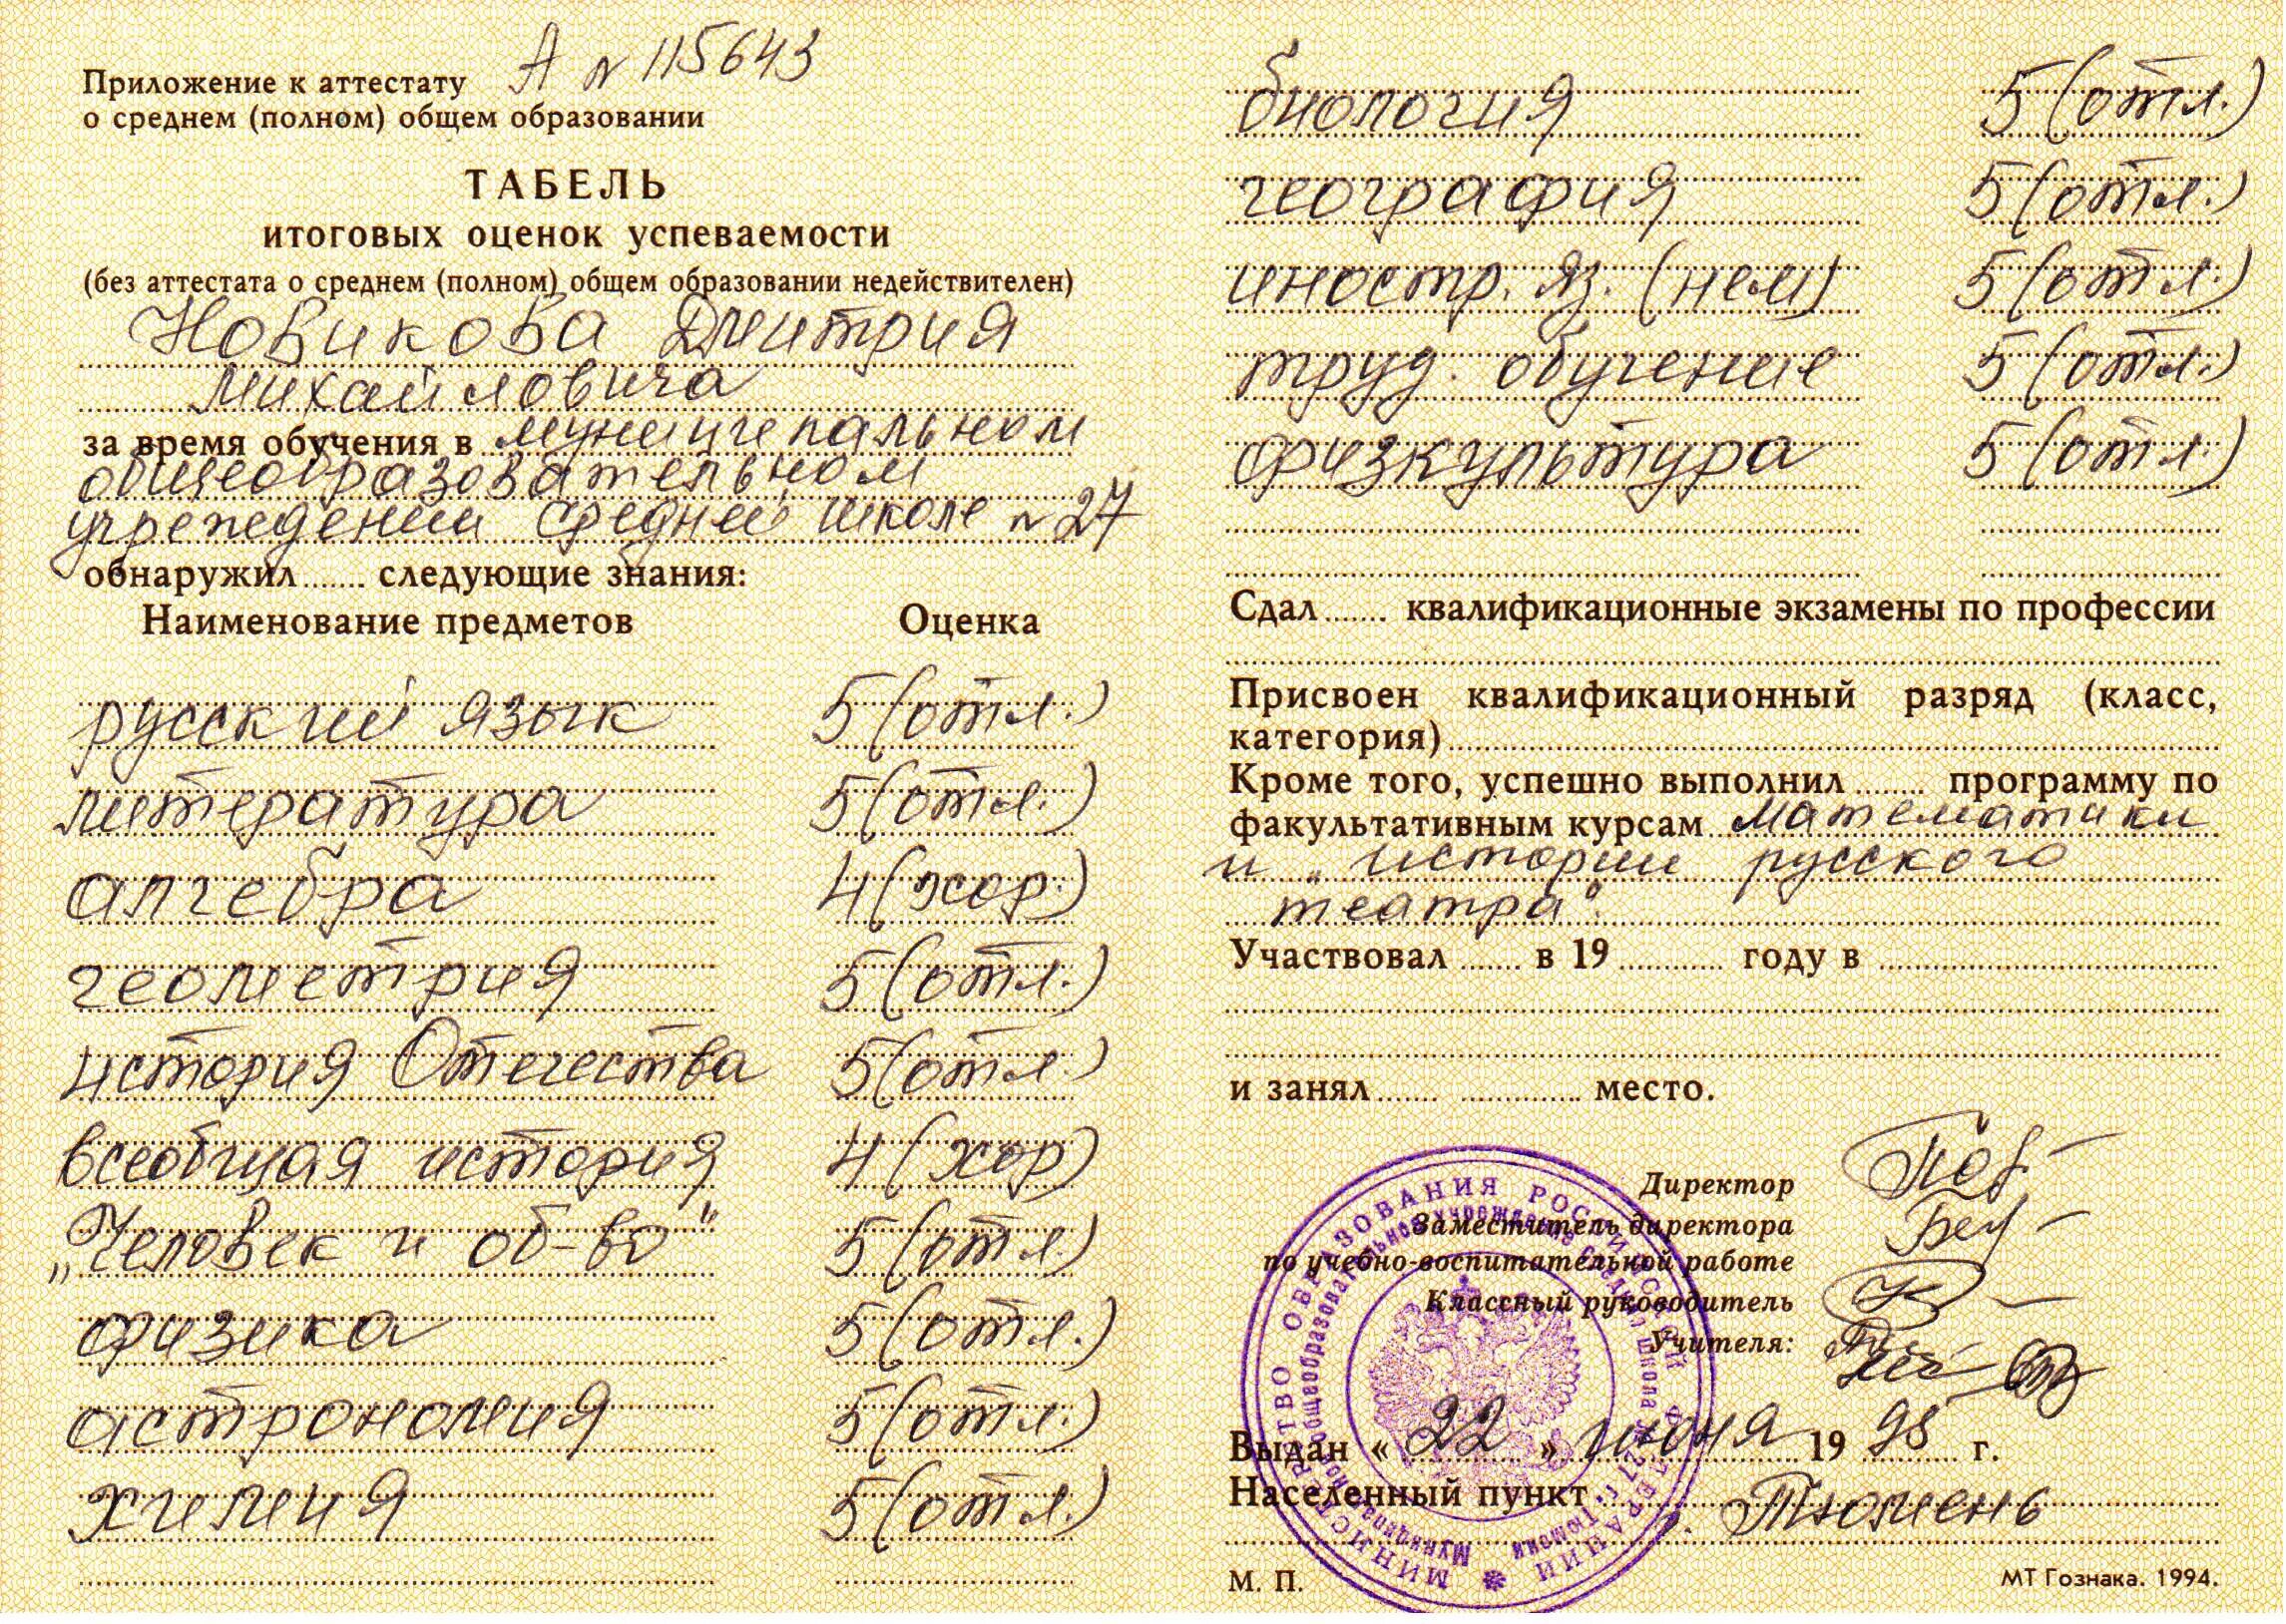 Приложение к аттестату А № 115643
о среднем (полном) общем образовании
ТАБЕЛЬ
итоговых оценок успеваемости
(без аттестата о среднем (полном) общем образовании недействителен)
Новикова Дмитрия
Михайловича
за время обучения в муниципальном
общеобразовательном
учреждении средней школе № 27
обнаружил....... следующие знания:
Наименование предметов Оценка
русский язык 5 (отл.)
литература 5 (отл.)
алгебра 4 (хор.)
геометрия 5 (отл.)
история Отечества 5 (отл.)
всеобщая история 4 (хор)
„Человек и об-во" 5 (отл.)
физика 5 (отл.)
астрономия 5 (отл.)
химия 5 (отл.)
биология 5 (отл.)
география 5 (отл.)
иностр. яз. (нем) 5 (отл.)
труд. обучение 5 (отл.)
физкультура 5 (отл.)
Сдал....... квалификационные экзамены по профессии
Присвоен квалификационный разряд (класс,
категория)
Кроме того, успешно выполнил....... программу по
факультативным курсам математики
и „истории русского
театра".
Участвовал ...... в 19 ........... году в
и занял ...... ............ место.
Директор
Заместитель директора
по учебно-воспитательной работе
Классный руководитель
Учителя:
Выдан « 22 » июня 19 95 г.
Населенный пункт
г. Тюмень
М. П.
МТ Гознака. 1994.
МИНИСТЕРСТВО ОБРАЗОВАНИЯ РОССИЙСКОЙ ФЕДЕРАЦИИ
Муниципальное общеобразовательное учреждение средняя школа № 27 г. Тюмени